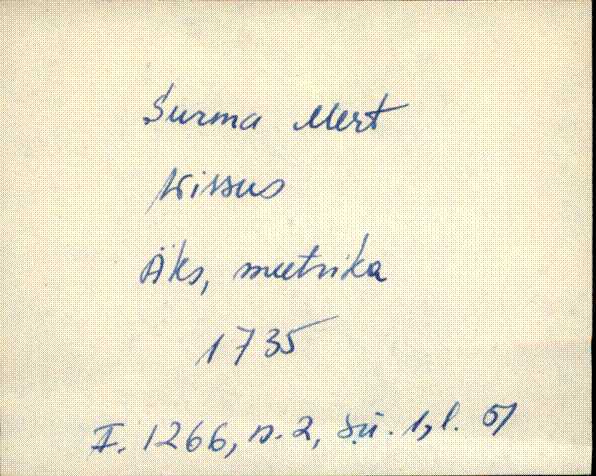 Surma Mert
Kissus
Äks, meetrika
1735
F. 1266, n. 2, sü. 1, l. 51